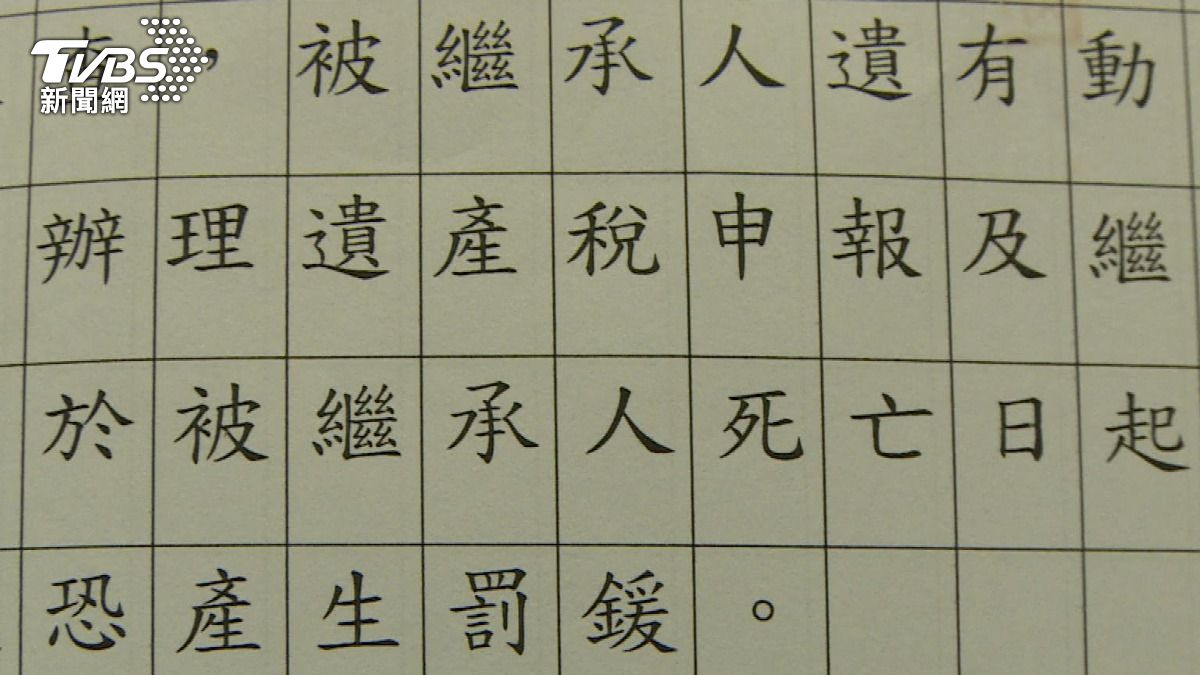 TVBS
新聞網
，被繼承人遺有動
辦理遺產稅申報及繼
於被繼承人死亡日起
恐產生罰鍰。